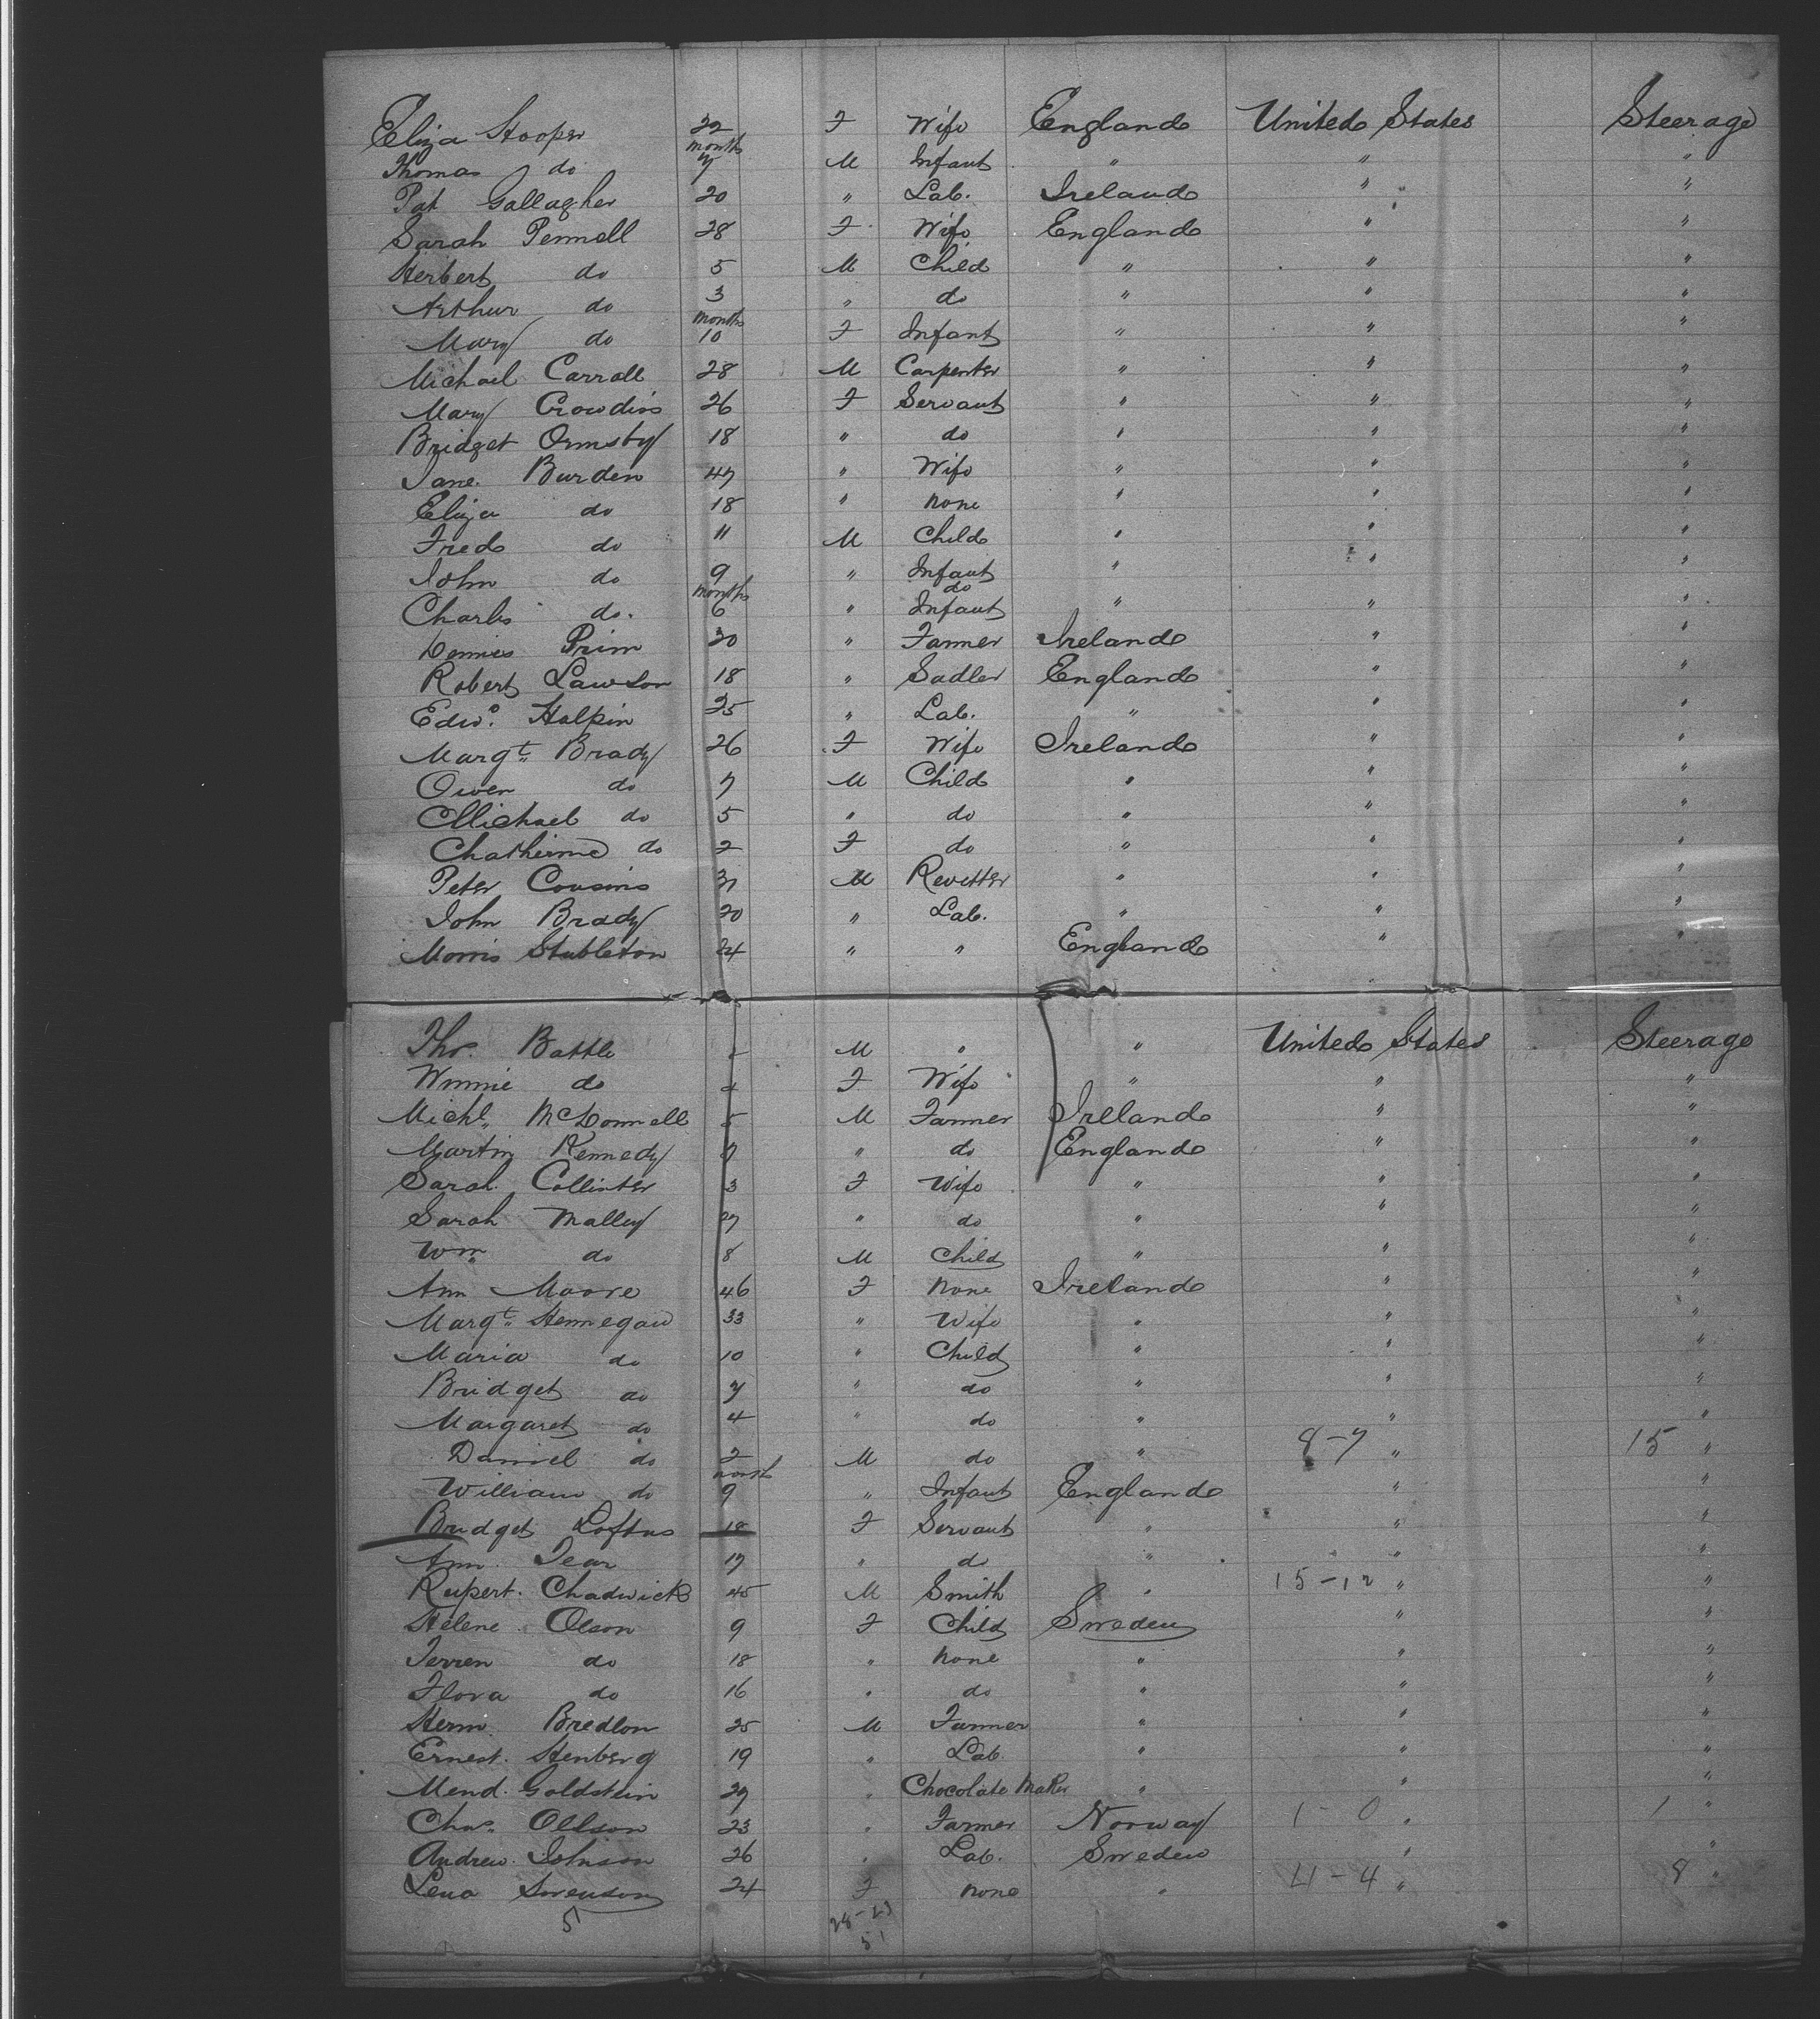 Eliza Hooper 32 F Wife England United States Steerage
Thomas do months 7 M Infant " " "
Pat Gallagher 20 " Lab. Ireland " "
Sarah Pennell 28 F Wife England " "
Herbert do 5 M Child " " "
Arthur do 3 " do " " "
Mary do months 10 F Infant " " "
Michael Carroll 28 M Carpenter " " "
Mary Crowdin 26 F Servant " " "
Bridget Ormsby 18 " do " " "
Jane Burden 47 " Wife " " "
Eliza do 18 " none " " "
Fred do 11 M Child " " "
John do 9 " Infant do " " "
Charles do. months 6 " Infant " " "
Dennis Prim 30 " Farmer Ireland " "
Robert Lawson 18 " Sadler England " "
Edwd. Halpin 25 " Lab. " " "
Margt. Brady 26 F Wife Ireland " "
Owen do 7 M Child " " "
Michael do 5 " do " " "
Chatherine do 2 F do " " "
Peter Cousins M Revetter " " "
John Brady 20 " Lab. " " "
Morris Stubleton 24 " " England " "
Thos. Battle M " " United States Steerage
Winnie do F Wife " " "
Michl. McDonnell 5 M Farmer Ireland " "
Martin Kennedy " do England " "
Sarah Collinter 3 F Wife " " "
Sarah Malley 27 " do " " "
Wm. do 8 M Child " " "
Ann Moore 46 F None Ireland " "
Margt. Hennegan 33 " Wife " " "
Maria do 10 " Child " " "
Bridget do 7 " do " " "
Margaret do 4 " do " " "
Daniel do 2 M do " 8-7 " 15 "
William do month 9 " Infant England " "
Bridget Loftus 18 F Servant " " "
Ann Dear 17 " do " " "
Rupert. Chadwick 45 M Smith " 15-12 " "
Helene Olson 9 F Child Sweden " "
Jerren do 18 " none " " "
Flora do 16 " do " " "
Herm. Bredlon 25 M Farmer " " "
Ernest. Stenberg 19 " Lab " " "
Mend. Goldstein 29 " Chocolate Maker " " "
Chas. Ollson 23 " Farmer Norway 1-0 " 1 "
Andrew. Johnson 26 " Lab. Sweden " "
Lena Sorenson 24 F none " 4-4 " 8 "
51 28-23
51